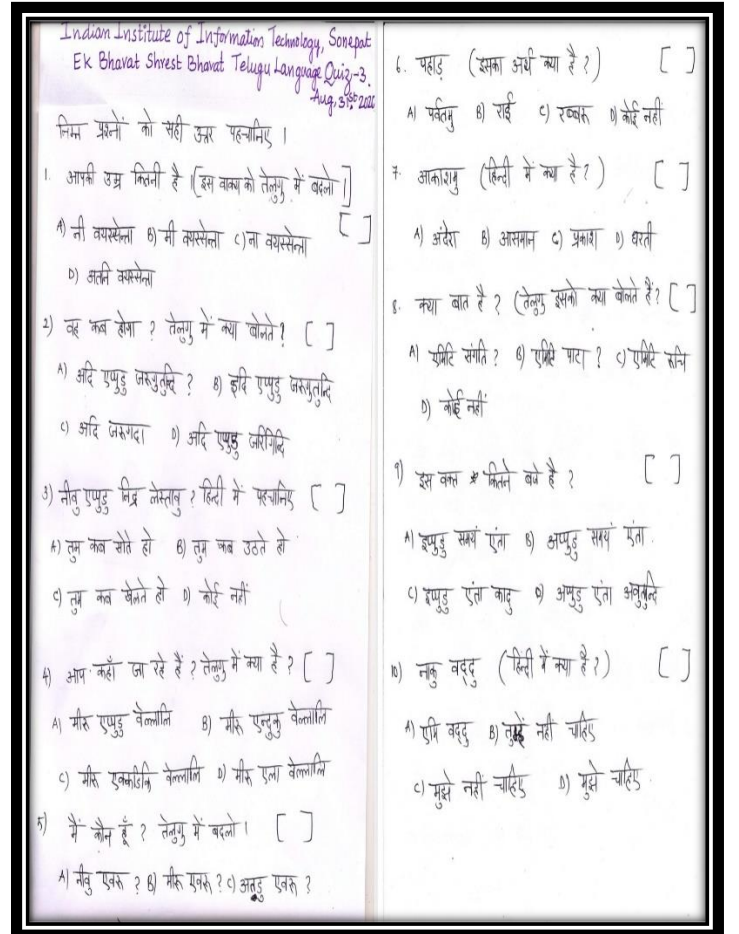 Indian Institute of Information Technology, Sonepat
Ek Bhavat Shrest Bhavat Telugu Language Quiz-3.
Aug, 31st 2022
निम्न प्रश्नों को सही उत्तर पहचानिए ।
1. आपकी उम्र कितनी है ।[इस वाक्य को तेलुगु में बदलो ।]
[ ]
A) नी वयस्सेन्ता B) मी वयस्सेन्ता C) ना वयस्सेन्ता
D) अतनि वयस्सेन्ता
2) वह कब होगा ? तेलुगु में क्या बोलते ? [ ]
A) अदि एप्पुडु जरुगुतुन्दि ? B) इदि एप्पुडु जरुगुतुन्दि
C) अदि जरुगदा D) अदि एप्पुडु जरिगिन्दि
3) नीवु एप्पुडु निद्र लेस्तावु ? हिन्दी में पहचानिए [ ]
A) तुम कब सोते हो B) तुम कब उठते हो
C) तुम कब खेलते हो D) कोई नहीं
4) आप कहाँ जा रहे हैं ? तेलुगु में क्या है ? [ ]
A) मीरु एप्पुडु वेल्लालि B) मीरु एन्दुकु वेल्लालि
C) मीरु एक्कडिकि वेल्लालि D) मीरु एला वेल्लालि
5) मैं कौन हूँ ? तेलुगु में बदलो । [ ]
A) नीवु एवरु ? B) मीरु एवरु ? C) अतडु एवरु ?
6. पहाड़ (इसका अर्थ क्या है ?) [ ]
A) पर्वतमु B) राई C) रब्बरु D) कोई नहीं
7. आकाशमु (हिन्दी में क्या है ?) [ ]
A) अंदेरा B) आसमान C) प्रकाश D) धरती
8. क्या बात है ? (तेलुगु इसको क्या बोलते हैं? [ ]
A) एमिटि संगति ? B) एमिटि पाटा ? C) एमिटि रुचि
D) कोई नहीं
9) इस वक्त कितने बजे है ? [ ]
A) इप्पुडु समयं एंता B) अप्पुडु समयं एंता .
C) इप्पुडु एंता कादु D) अप्पुडु एंता अवुतुन्दि
10) नाकु वद्दु (हिन्दी में क्या है ?) [ ]
A) एमि वद्दु B) तुम्हें नहीं चाहिए
C) मुझे नहीं चाहिए D) मुझे चाहिए .